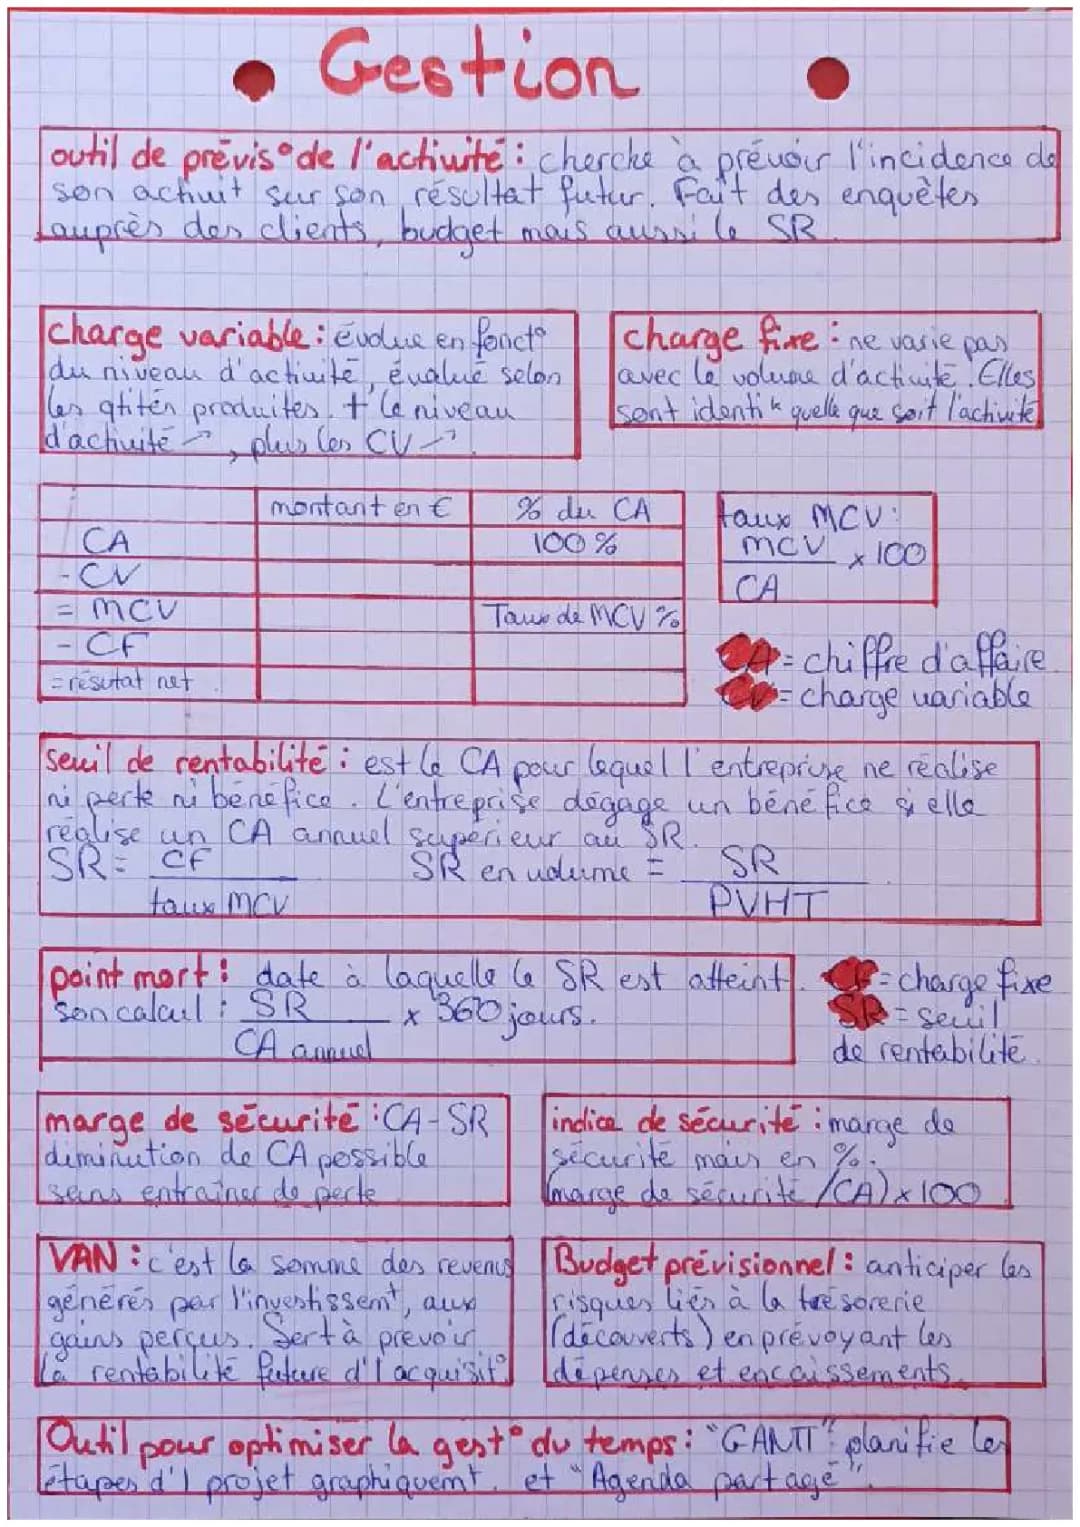 Gestion
outil de prévis° de l'activité : cherche à prévoir l'incidence de
son activit sur son résultat futur. Fait des enquêtes
auprès des clients, budget mais aussi le SR.
charge variable : évolue en fonct°
du niveau d'activité, évalué selon
les qtités produites. + le niveau
d'activité ↗, plus les CV ↗.
charge fixe : ne varie pas
avec le volume d'activité. Elles
sont identik quelle que soit l'activité
montant en € % du CA
CA 100 %
- CV
= MCV Taux de MCV %
- CF
= résutat net
taux MCV :
MCV x 100
CA
CA = chiffre d'affaire
CV = charge variable
seuil de rentabilité : est le CA pour lequel l'entreprise ne réalise
ni perte ni bénéfice. L'entreprise dégage un bénéfice si elle
réalise un CA annuel supérieur au SR.
SR = CF SR en volume = SR
taux MCV PVHT
point mort : date à laquelle le SR est atteint.
son calcul : SR x 360 jours.
CA annuel
CF = charge fixe
SR = seuil
de rentabilité.
marge de sécurité : CA - SR
diminution de CA possible
sans entraîner de perte
indice de sécurité : marge de
sécurité mais en %.
(marge de sécurité / CA) x 100
VAN : c'est la somme des revenus
générés par l'investissemt, aux
gains perçus. Sert à prévoir
la rentabilité future d'1 acquisit°
Budget prévisionnel : anticiper les
risques liés à la trésorerie
(découverts) en prévoyant les
dépenses et encaissements.
Outil pour optimiser la gest° du temps : "GANTT" : planifie les
étapes d'1 projet graphiquemt. et "Agenda partagé".